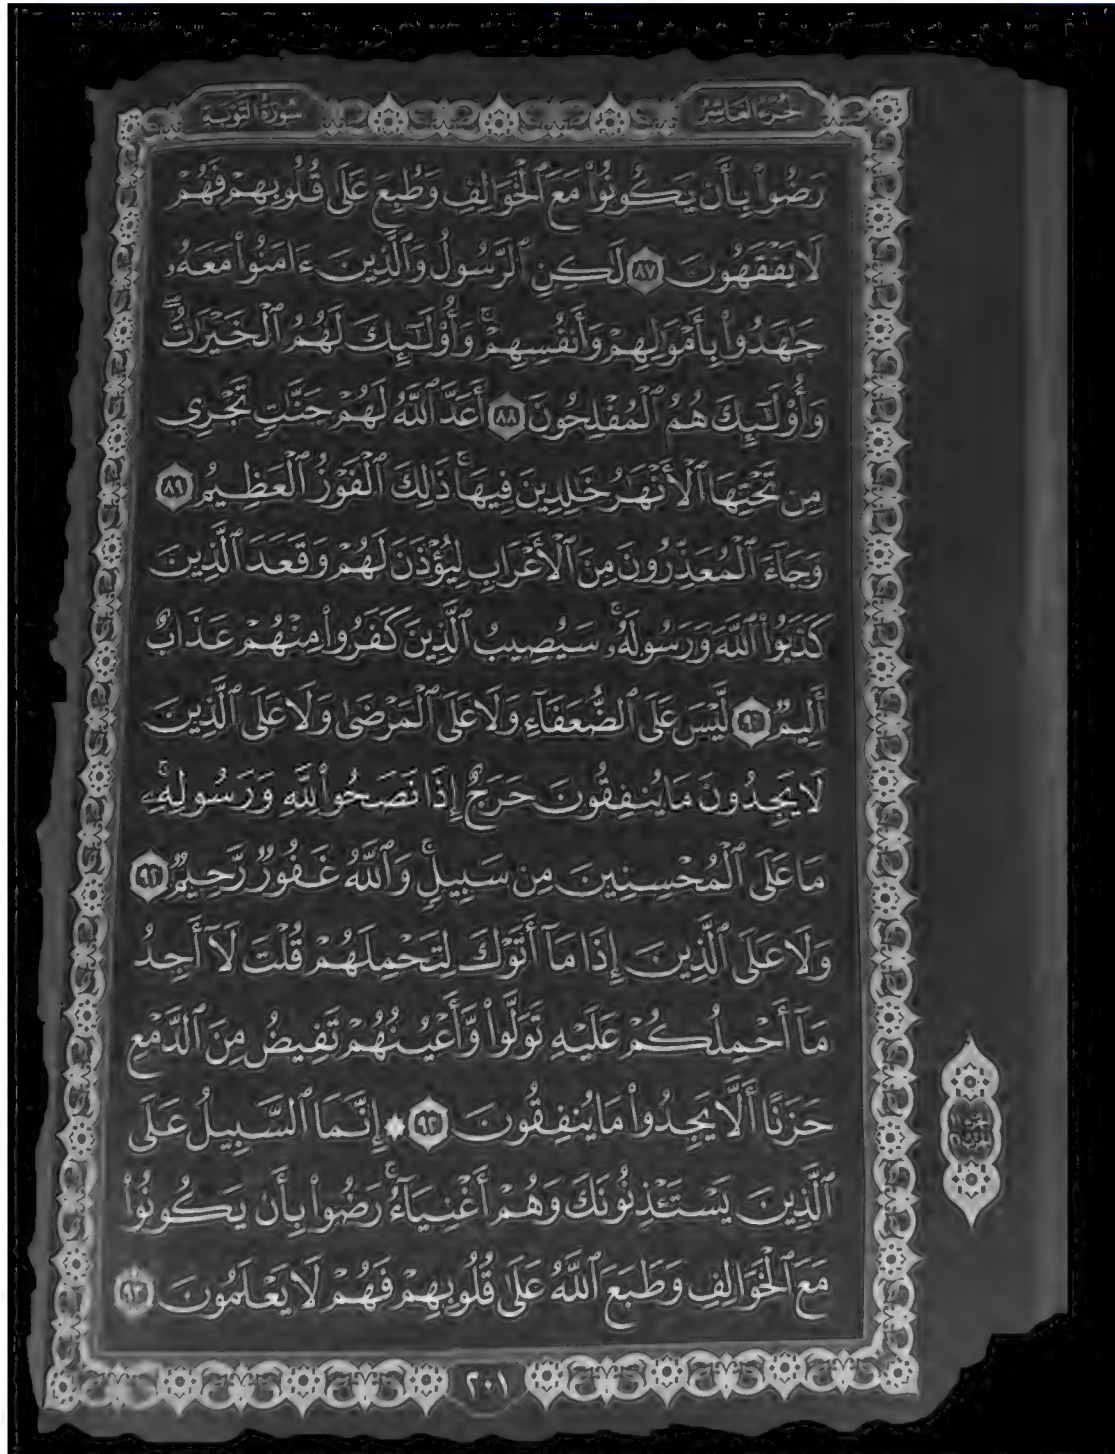 الجزء العاشر
سورة التوبة
رَضُوا۟ بِأَن يَكُونُوا۟ مَعَ ٱلْخَوَالِفِ وَطُبِعَ عَلَىٰ قُلُوبِهِمْ فَهُمْ
لَا يَفْقَهُونَ ٨٧ لَـٰكِنِ ٱلرَّسُولُ وَٱلَّذِينَ ءَامَنُوا۟ مَعَهُۥ
جَـٰهَدُوا۟ بِأَمْوَٰلِهِمْ وَأَنفُسِهِمْ ۚ وَأُو۟لَـٰٓئِكَ لَهُمُ ٱلْخَيْرَٰتُ ۖ
وَأُو۟لَـٰٓئِكَ هُمُ ٱلْمُفْلِحُونَ ٨٨ أَعَدَّ ٱللَّهُ لَهُمْ جَنَّـٰتٍ تَجْرِى
مِن تَحْتِهَا ٱلْأَنْهَـٰرُ خَـٰلِدِينَ فِيهَا ۚ ذَٰلِكَ ٱلْفَوْزُ ٱلْعَظِيمُ ٨٩
وَجَآءَ ٱلْمُعَذِّرُونَ مِنَ ٱلْأَعْرَابِ لِيُؤْذَنَ لَهُمْ وَقَعَدَ ٱلَّذِينَ
كَذَبُوا۟ ٱللَّهَ وَرَسُولَهُۥ ۚ سَيُصِيبُ ٱلَّذِينَ كَفَرُوا۟ مِنْهُمْ عَذَابٌ
أَلِيمٌ ٩٠ لَّيْسَ عَلَى ٱلضُّعَفَآءِ وَلَا عَلَى ٱلْمَرْضَىٰ وَلَا عَلَى ٱلَّذِينَ
لَا يَجِدُونَ مَا يُنفِقُونَ حَرَجٌ إِذَا نَصَحُوا۟ لِلَّهِ وَرَسُولِهِۦ ۚ
مَا عَلَى ٱلْمُحْسِنِينَ مِن سَبِيلٍ ۚ وَٱللَّهُ غَفُورٌ رَّحِيمٌ ٩١
وَلَا عَلَى ٱلَّذِينَ إِذَا مَآ أَتَوْكَ لِتَحْمِلَهُمْ قُلْتَ لَآ أَجِدُ
مَآ أَحْمِلُكُمْ عَلَيْهِ تَوَلَّوا۟ وَّأَعْيُنُهُمْ تَفِيضُ مِنَ ٱلدَّمْعِ
حَزَنًا أَلَّا يَجِدُوا۟ مَا يُنفِقُونَ ٩٢ ۞ إِنَّمَا ٱلسَّبِيلُ عَلَى
ٱلَّذِينَ يَسْتَـْٔذِنُونَكَ وَهُمْ أَغْنِيَآءُ ۚ رَضُوا۟ بِأَن يَكُونُوا۟
مَعَ ٱلْخَوَالِفِ وَطَبَعَ ٱللَّهُ عَلَىٰ قُلُوبِهِمْ فَهُمْ لَا يَعْلَمُونَ ٩٣
٢٠١